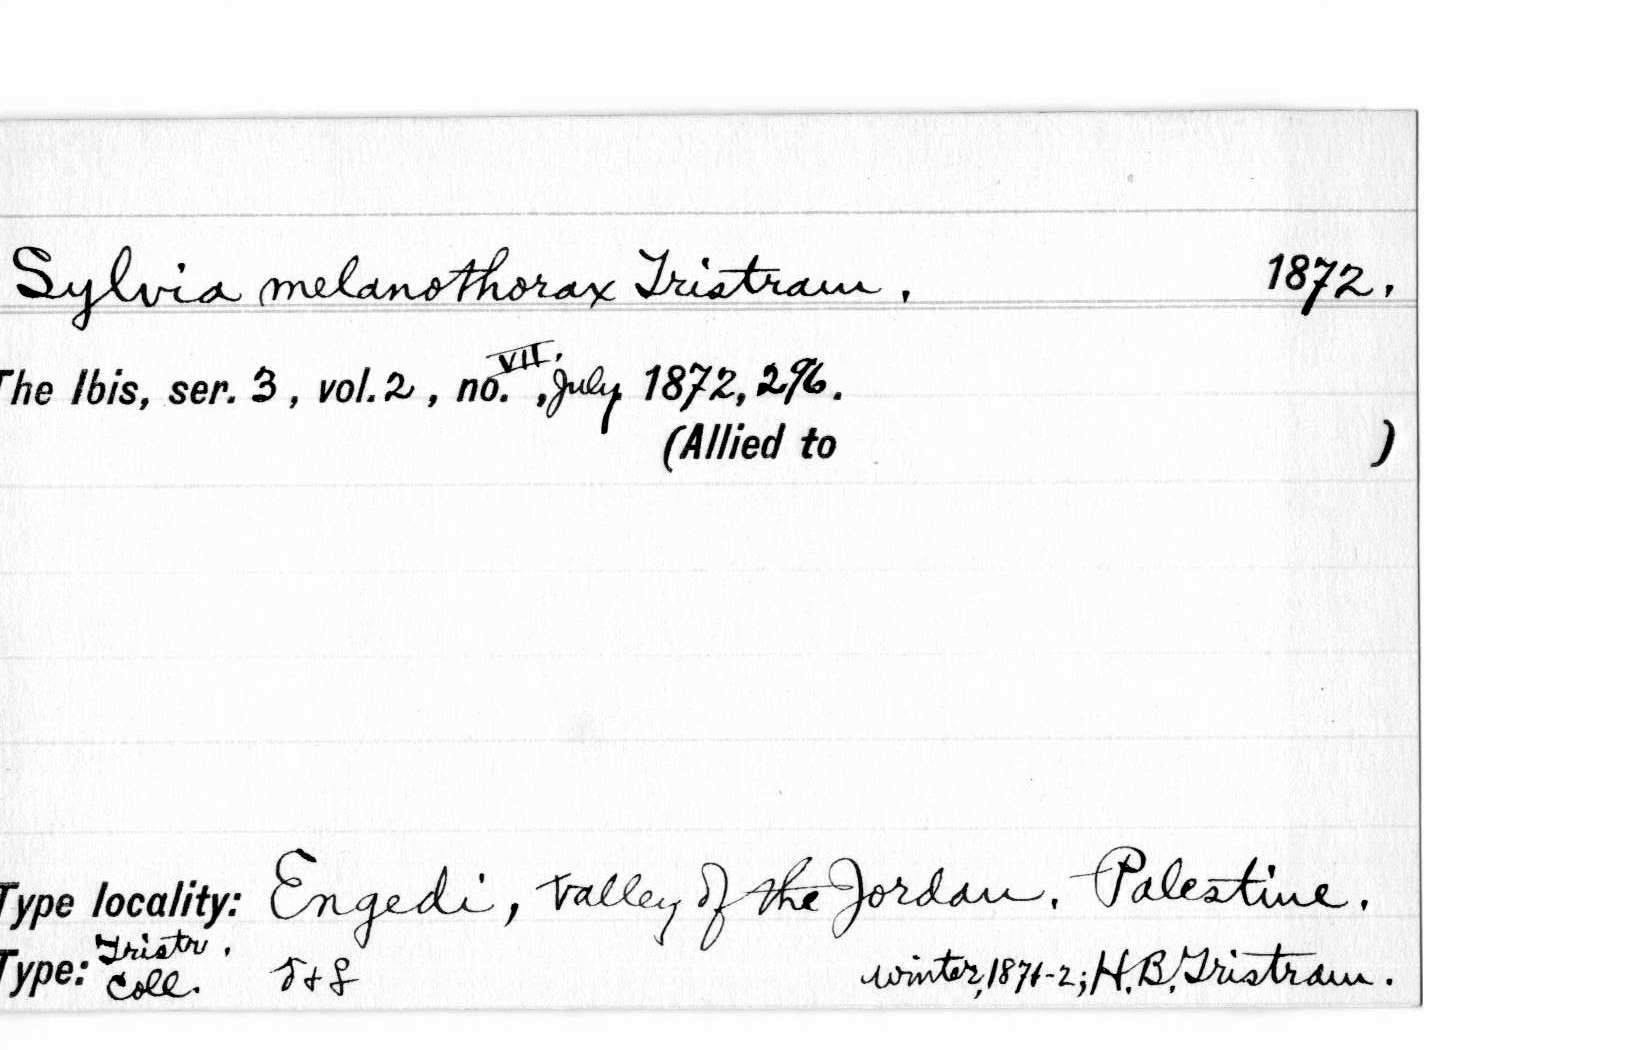 Sylvia melanothorax Tristram. 1872.
The Ibis, ser. 3, vol. 2, no. VII., July 1872, 296.
(Allied to )
Type locality: Engedi, valley of the Jordan. Palestine.
Type: Tristr. Coll. ♂+♀ winter, 1871-2; H.B. Tristram.